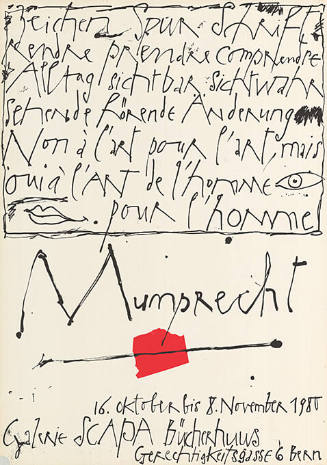 Zeichen Spur Schrift
Rendre prendre comprendre
Alltag sichtbar sichtwahr
Sehende Hörende Änderung
Non à l'art pour l'art, mais
oui à l'ART de l'homme
pour l'homme
Mumprecht
16. Oktober bis 8. November 1980
Galerie SCAPA Bücherhuus
Gerechtigkeitsgasse 6 Bern